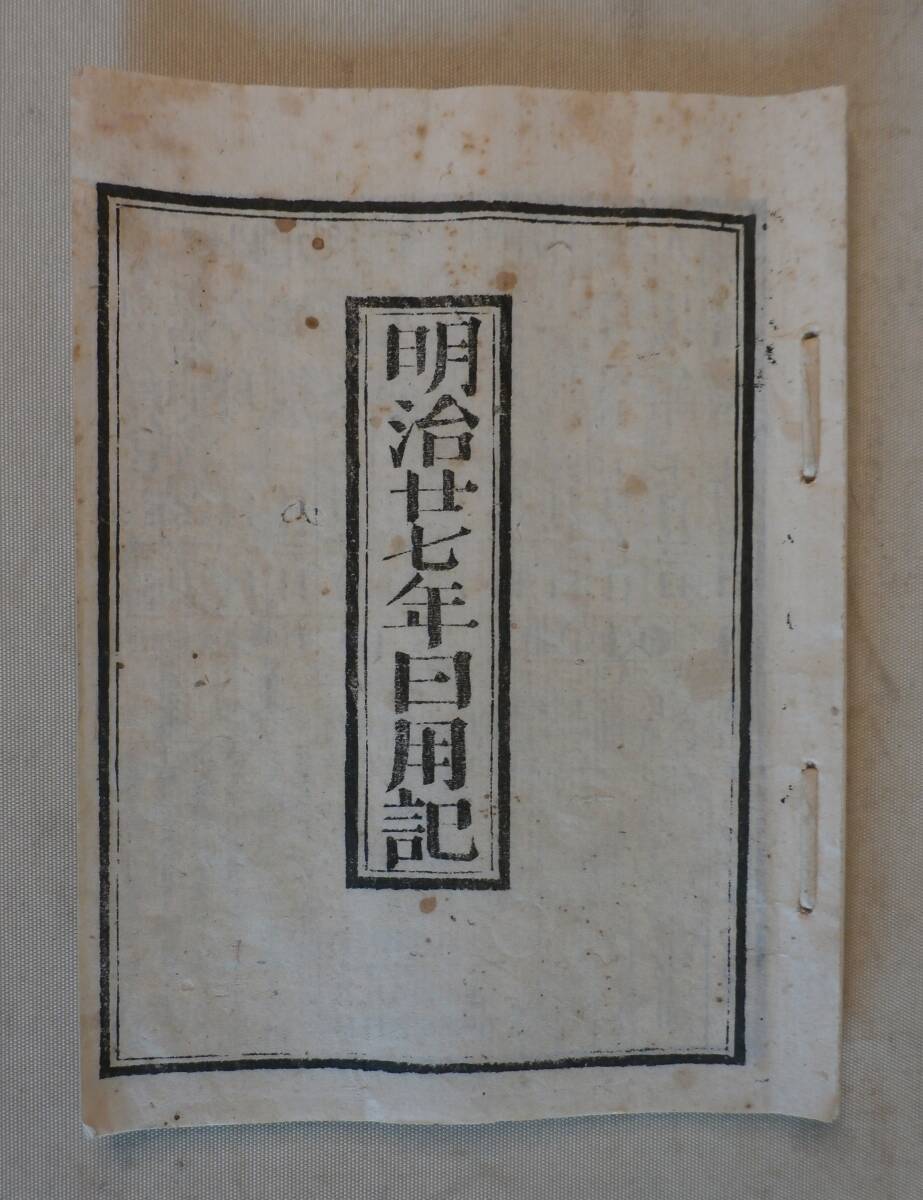 明治廿七年日用記